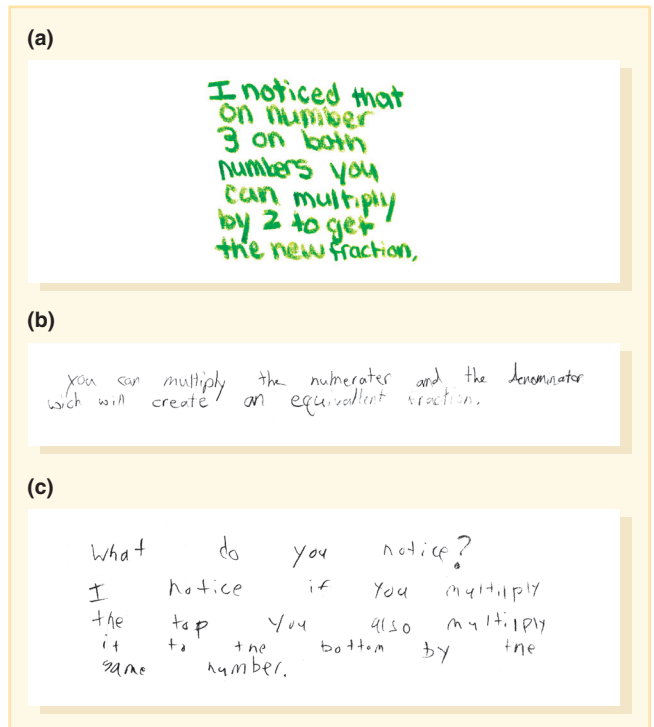 (a)
I noticed that
on number
3 on both
numbers you
can multiply
by 2 to get
the new fraction.
(b)
you can multiply the numerater and the denominator
wich will create an equivallent fraction.
(c)
What do you notice?
I notice if you multilply
the top you also multilply
it to the bottom by the
same number.